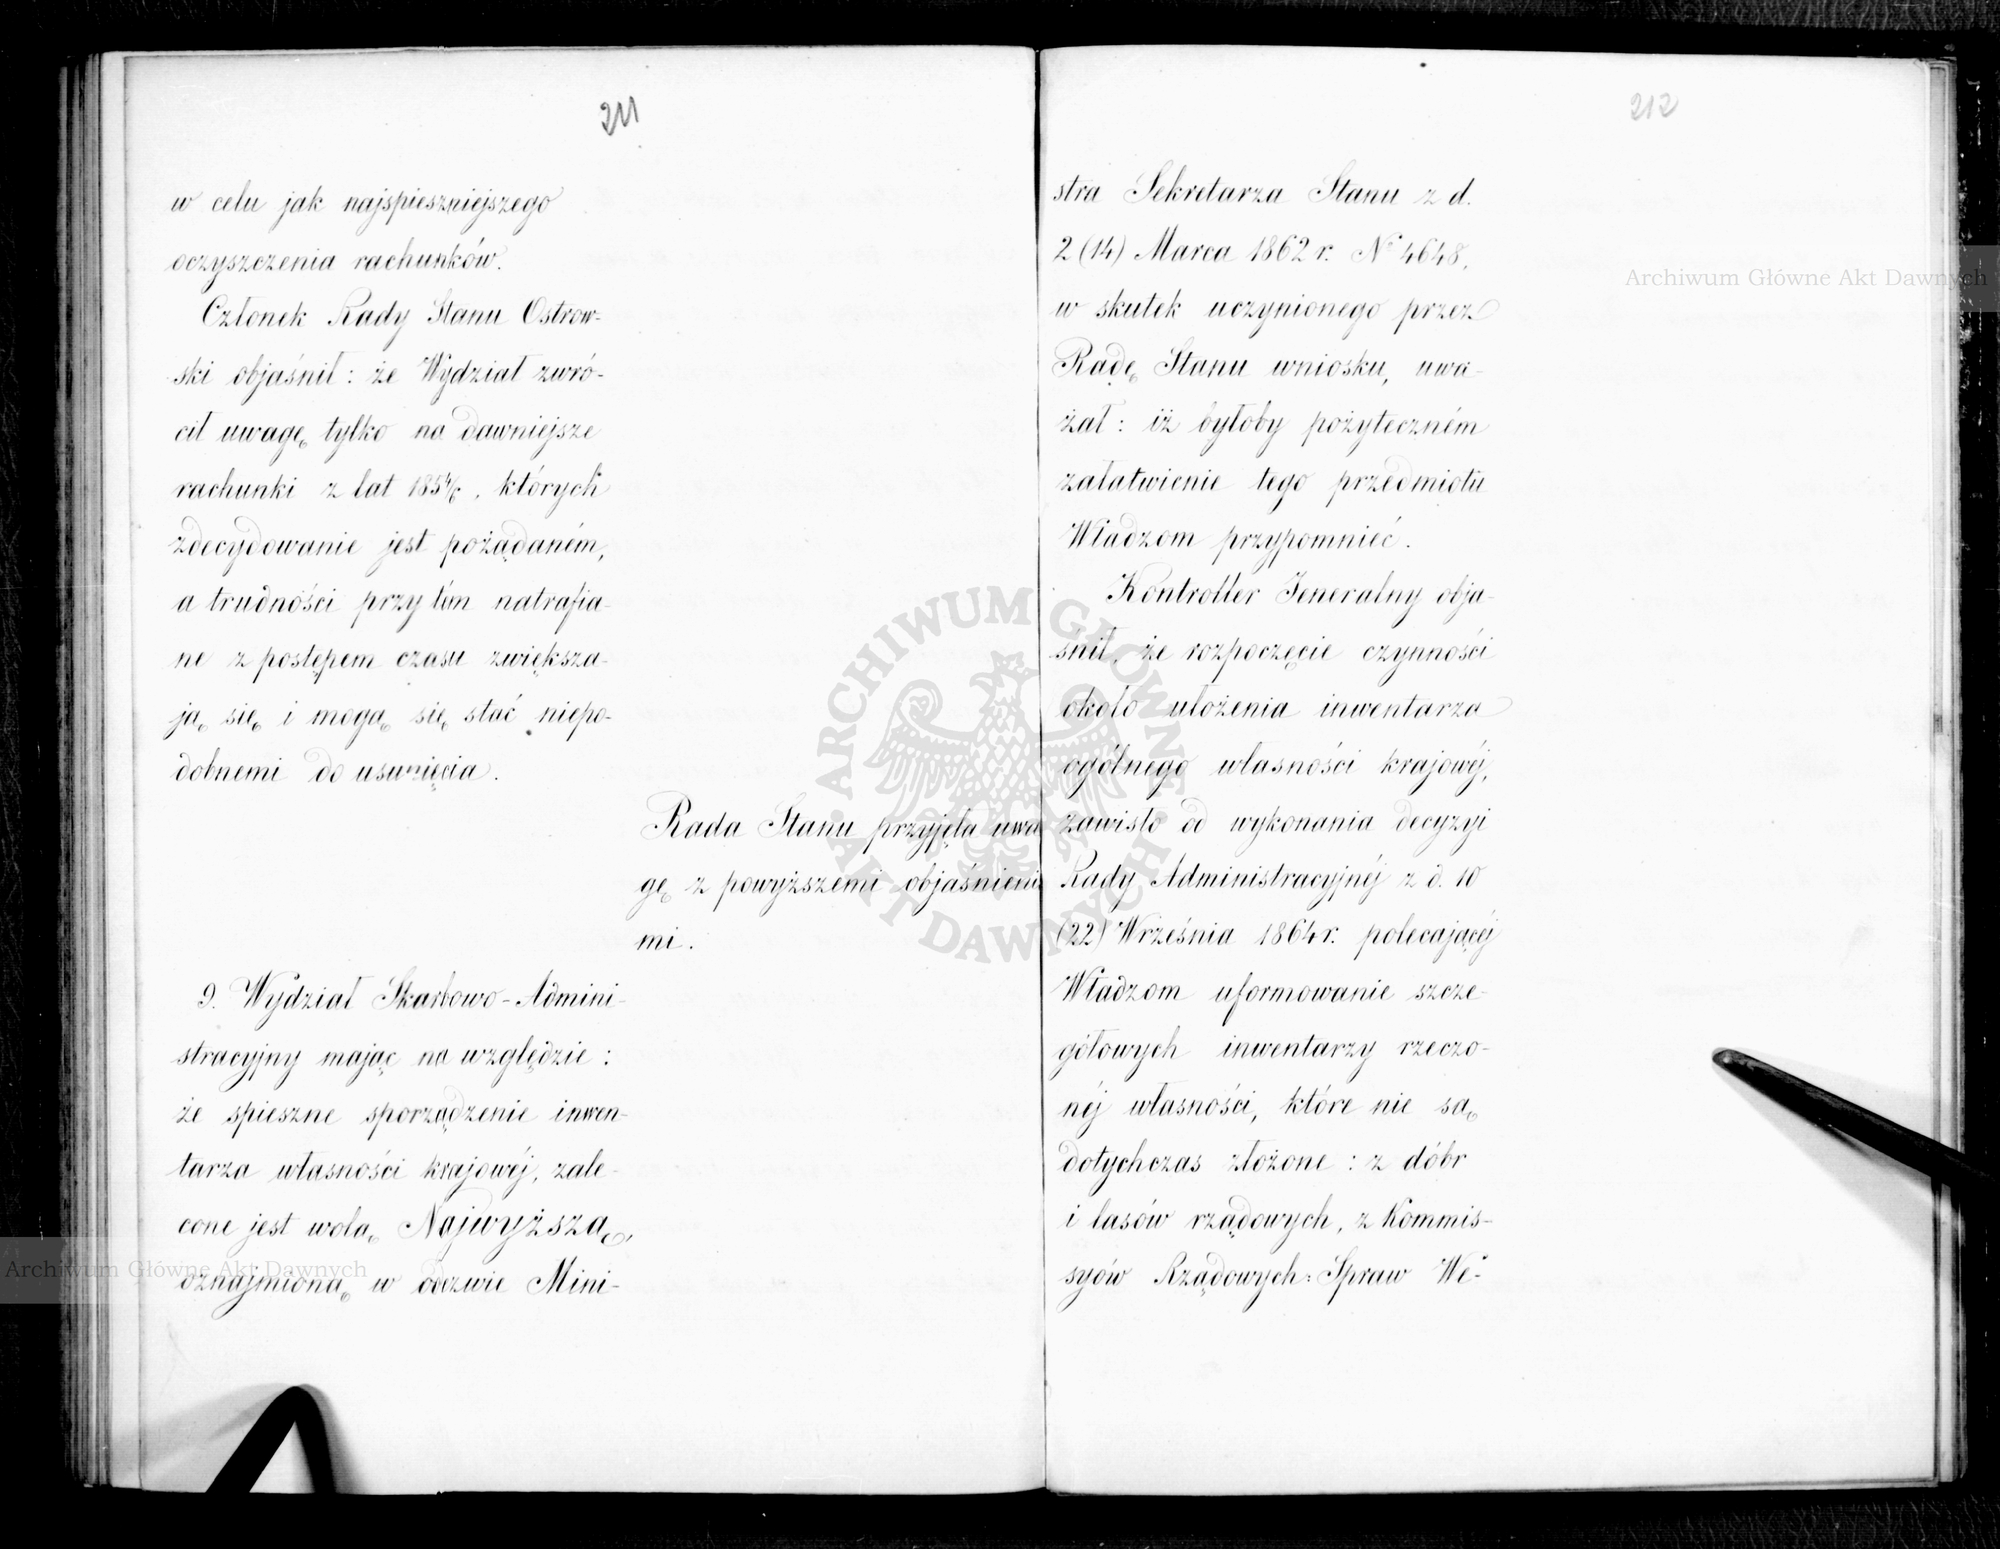 211
w celu jak najspieszniejszego
oczyszczenia rachunków.
Członek Rady Stanu Ostrow-
ski objaśnił: że Wydział zwró-
cił uwagę tylko na dawniejsze
rachunki z lat, których
zdecydowanie jest pożądaném,
a trudności przy tém natrafia-
ne z postępem czasu zwiększa-
ją się i mogą się stać niepo-
dobnemi do usunięcia.
Rada Stanu przyjęła uwa
gę z powyższemi objaśnienia
mi.
9. Wydział Skarbowo-Admini-
stracyjny mając na względzie:
że spieszne sporządzenie inwen-
tarza własności krajowéj, zale-
cone jest wolą Najwyższą,
oznajmioną w odezwie Mini-
212
stra Sekretarza Stanu z d.
2 (14) Marca 1862 r. Nº 4648,
w skutek uczynionego przez
Radę Stanu wniosku, uwa-
żał: iż byłoby pożyteczném
załatwienie tego przedmiotu
Władzom przypomnieć.
Kontroller Jeneralny obja-
śnił, że rozpoczęcie czynności
około ułożenia inwentarza
ogólnego własności krajowéj,
zawisło od wykonania decyzyi
Rady Administracyjnéj z d. 10
(22) Września 1864 r. polecającéj
Władzom uformowanie szcze-
gółowych inwentarzy rzeczo-
néj własności, które nie są
dotychczas złożone: z dóbr
i lasów rządowych, z Kommis-
syów Rządowych: Spraw We-
Archiwum Główne Akt Dawnych
Archiwum Główne Akt Dawnych
ARCHIWUM GŁÓWNE
AKT DAWNYCH